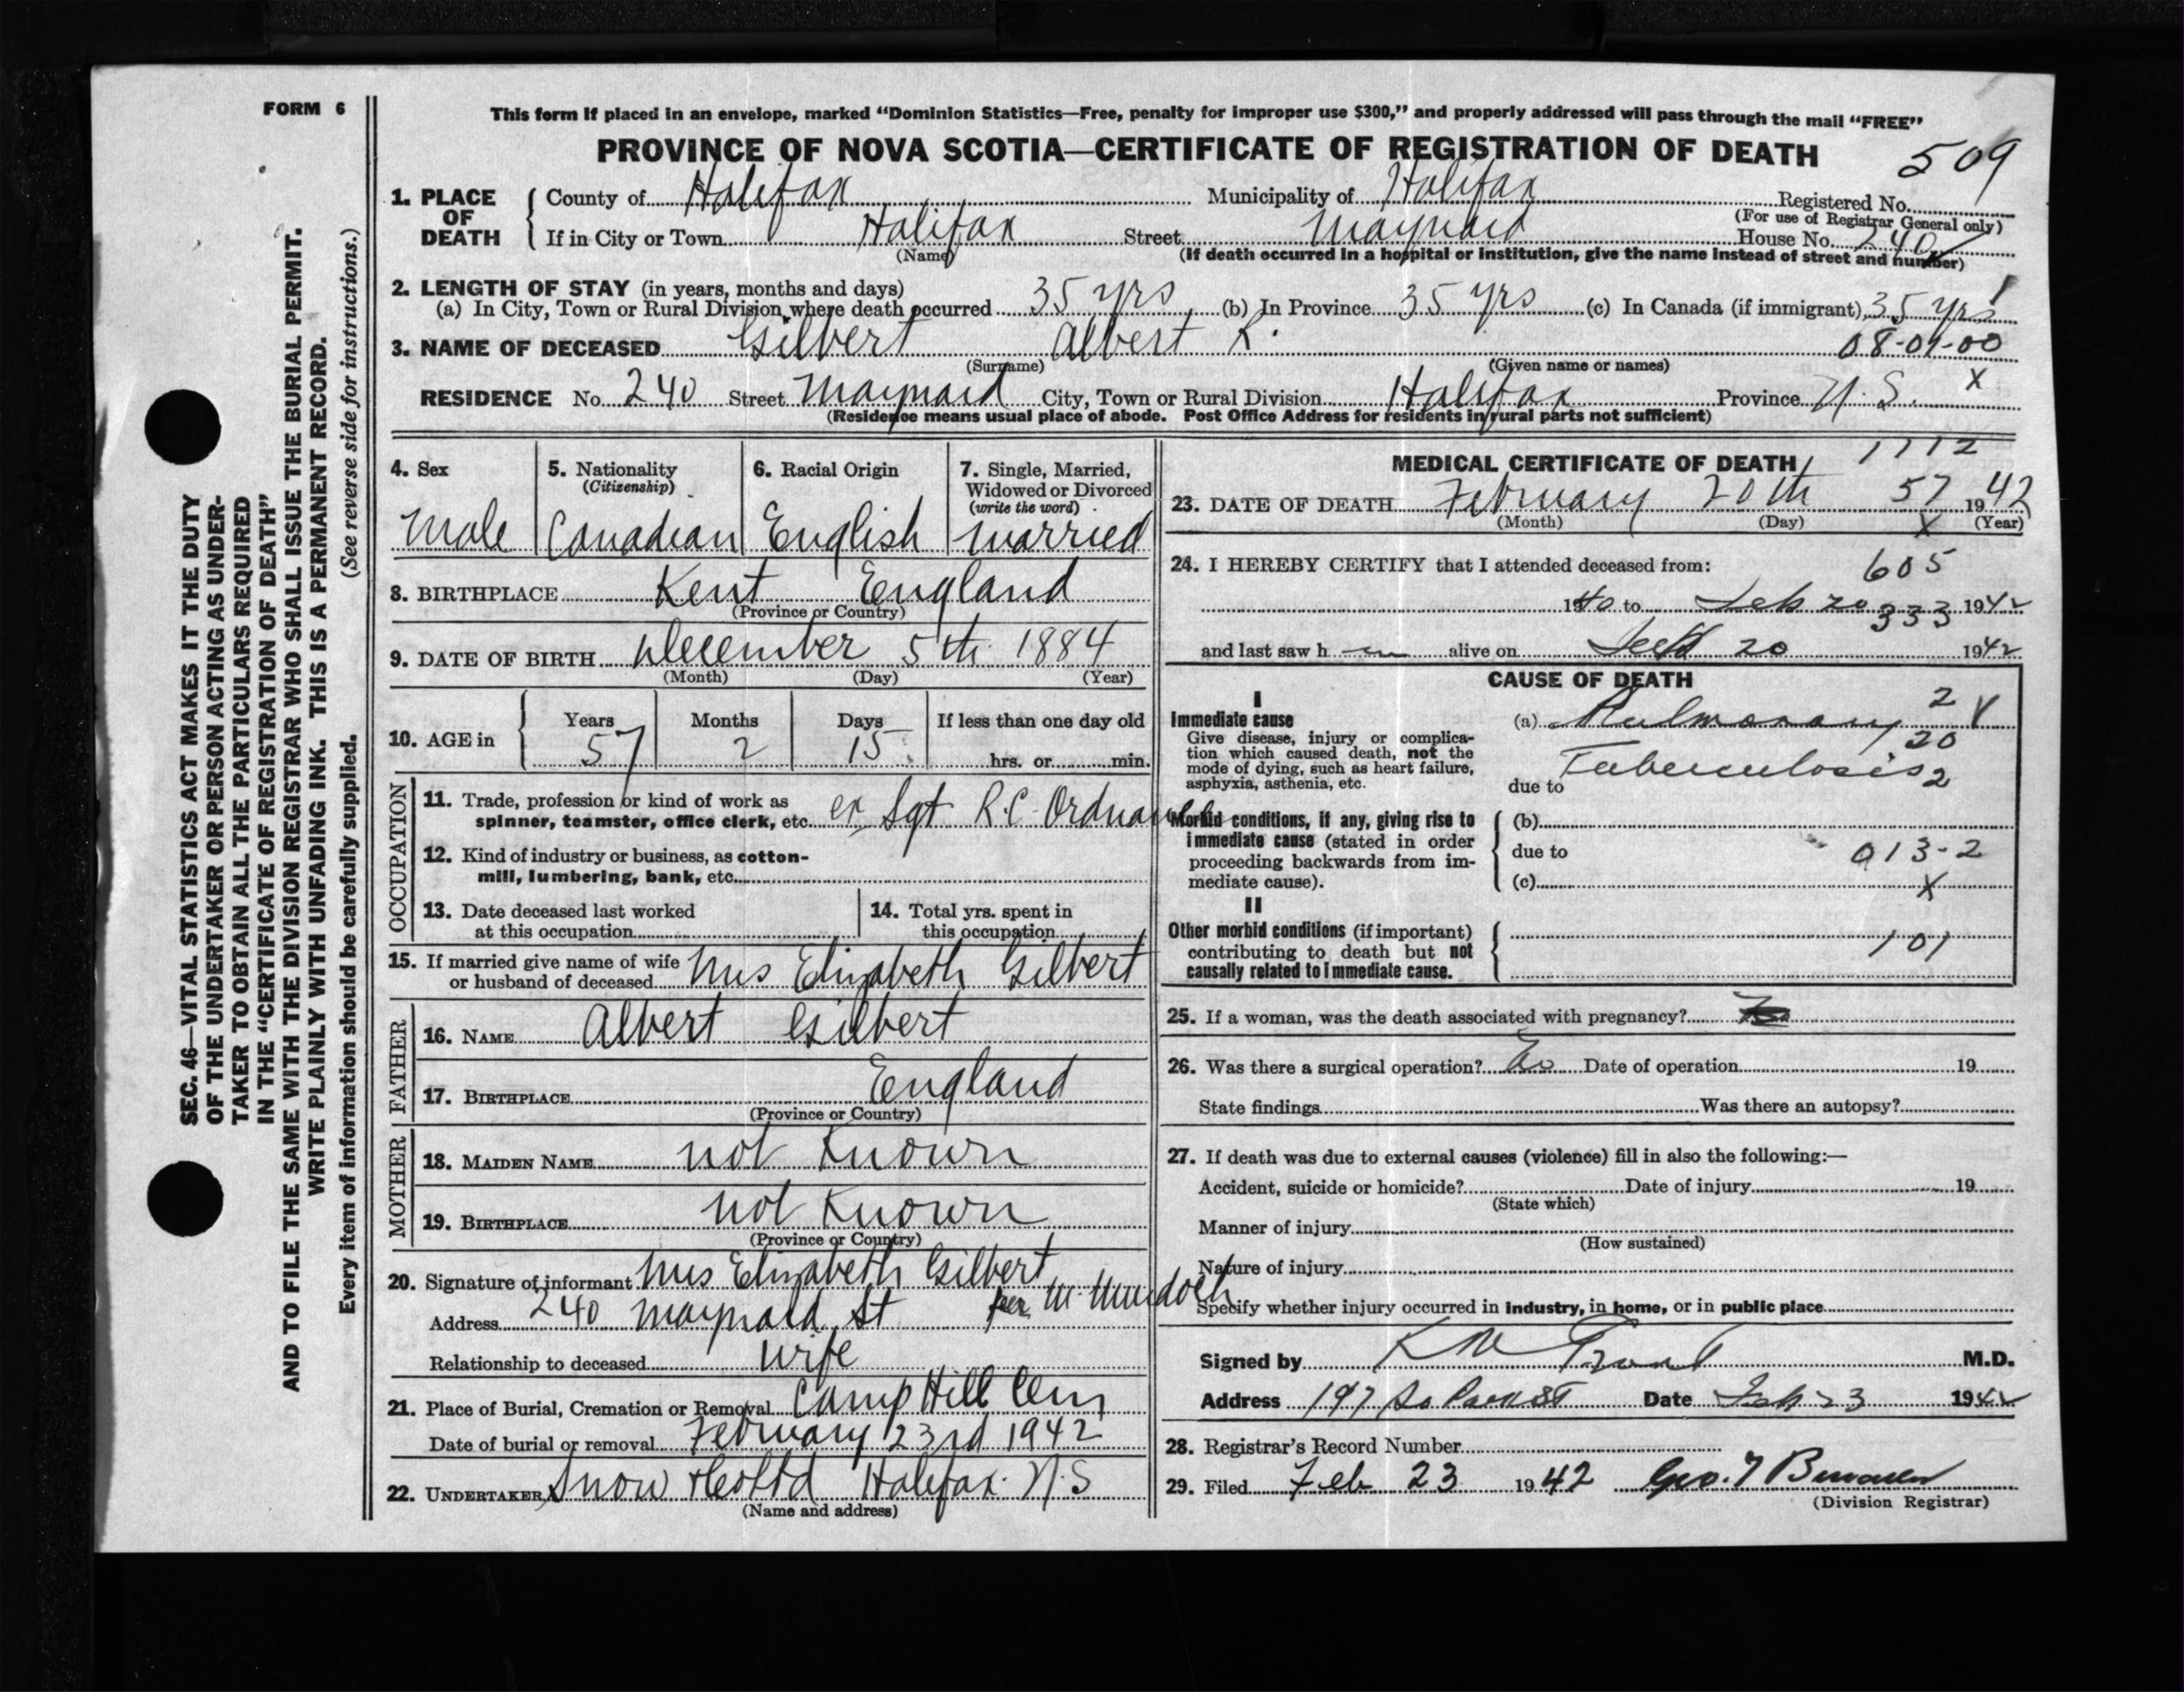 FORM 6
This form if placed in an envelope, marked "Dominion Statistics—Free, penalty for improper use $300," and properly addressed will pass through the mail "FREE"
PROVINCE OF NOVA SCOTIA—CERTIFICATE OF REGISTRATION OF DEATH
509
1. PLACE OF DEATH
County of Halifax Municipality of Halifax Registered No.
(For use of Registrar General only)
If in City or Town Halifax Street Maynard House No. 240
(Name) (If death occurred in a hospital or institution, give the name instead of street and number)
2. LENGTH OF STAY (in years, months and days)
(a) In City, Town or Rural Division where death occurred 35 yrs (b) In Province 35 yrs (c) In Canada (if immigrant) 35 yrs
3. NAME OF DECEASED Gilbert Albert R. 08-01-00
(Surname) (Given name or names)
RESIDENCE No. 240 Street Maynard City, Town or Rural Division Halifax Province N.S. X
(Residence means usual place of abode. Post Office Address for residents in rural parts not sufficient)
4. Sex
Male
5. Nationality
(Citizenship)
Canadian
6. Racial Origin
English
7. Single, Married,
Widowed or Divorced
(write the word)
Married
8. BIRTHPLACE Kent England
(Province or Country)
9. DATE OF BIRTH December 5th 1884
(Month) (Day) (Year)
10. AGE in
Years Months Days If less than one day old
57 2 15 hrs. or min.
OCCUPATION
11. Trade, profession or kind of work as
spinner, teamster, office clerk, etc. ex Sgt R.C. Ordnance
12. Kind of industry or business, as cotton-
mill, lumbering, bank, etc.
13. Date deceased last worked
at this occupation
14. Total yrs. spent in
this occupation
15. If married give name of wife
or husband of deceased Mrs Elizabeth Gilbert
FATHER
16. NAME Albert Gilbert
17. BIRTHPLACE England
(Province or Country)
MOTHER
18. MAIDEN NAME not Known
19. BIRTHPLACE not Known
(Province or Country)
20. Signature of informant Mrs Elizabeth Gilbert
per M. Murdoch
Address 240 Maynard St
Relationship to deceased wife
21. Place of Burial, Cremation or Removal Camp Hill Cem
Date of burial or removal February 23rd 1942
22. UNDERTAKER Snow & Co Ltd Halifax N.S
(Name and address)
MEDICAL CERTIFICATE OF DEATH
1112
23. DATE OF DEATH February 20th 57 1942
(Month) (Day) X (Year)
24. I HEREBY CERTIFY that I attended deceased from: 605
1940 to Feb 20 1942
333
and last saw h im alive on Feb 20 1942
CAUSE OF DEATH
I
Immediate cause
Give disease, injury or complica-
tion which caused death, not the
mode of dying, such as heart failure,
asphyxia, asthenia, etc.
(a) Pulmonary 2
20
due to Tuberculosis 2
Morbid conditions, if any, giving rise to
immediate cause (stated in order
proceeding backwards from im-
mediate cause).
(b)
due to 013-2
(c) X
II
Other morbid conditions (if important)
contributing to death but not
causally related to immediate cause.
101
25. If a woman, was the death associated with pregnancy?
26. Was there a surgical operation? No Date of operation 19
State findings Was there an autopsy?
27. If death was due to external causes (violence) fill in also the following:—
Accident, suicide or homicide? Date of injury 19
(State which)
Manner of injury
(How sustained)
Nature of injury
Specify whether injury occurred in industry, in home, or in public place
Signed by M.D.
Address 197 So Park St Date Feb 23 1942
28. Registrar's Record Number
29. Filed Feb 23 1942 Geo.
(Division Registrar)
SEC. 46—VITAL STATISTICS ACT MAKES IT THE DUTY
OF THE UNDERTAKER OR PERSON ACTING AS UNDER-
TAKER TO OBTAIN ALL THE PARTICULARS REQUIRED
IN THE "CERTIFICATE OF REGISTRATION OF DEATH"
AND TO FILE THE SAME WITH THE DIVISION REGISTRAR WHO SHALL ISSUE THE BURIAL PERMIT.
WRITE PLAINLY WITH UNFADING INK. THIS IS A PERMANENT RECORD.
Every item of information should be carefully supplied. (See reverse side for instructions.)